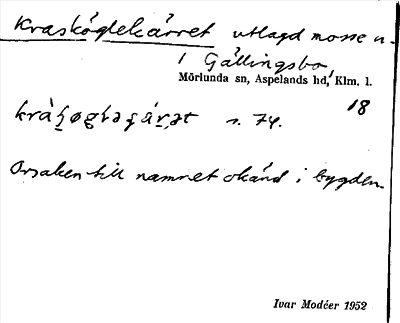 Kraskóglekä́rret utlagd mosse u.
i Gällingsbo
Mörlunda sn, Aspelands hd, Klm. l.
18
s. 74.
Orsaken till namnet okänd i bygden.
Ivar Modéer 1952